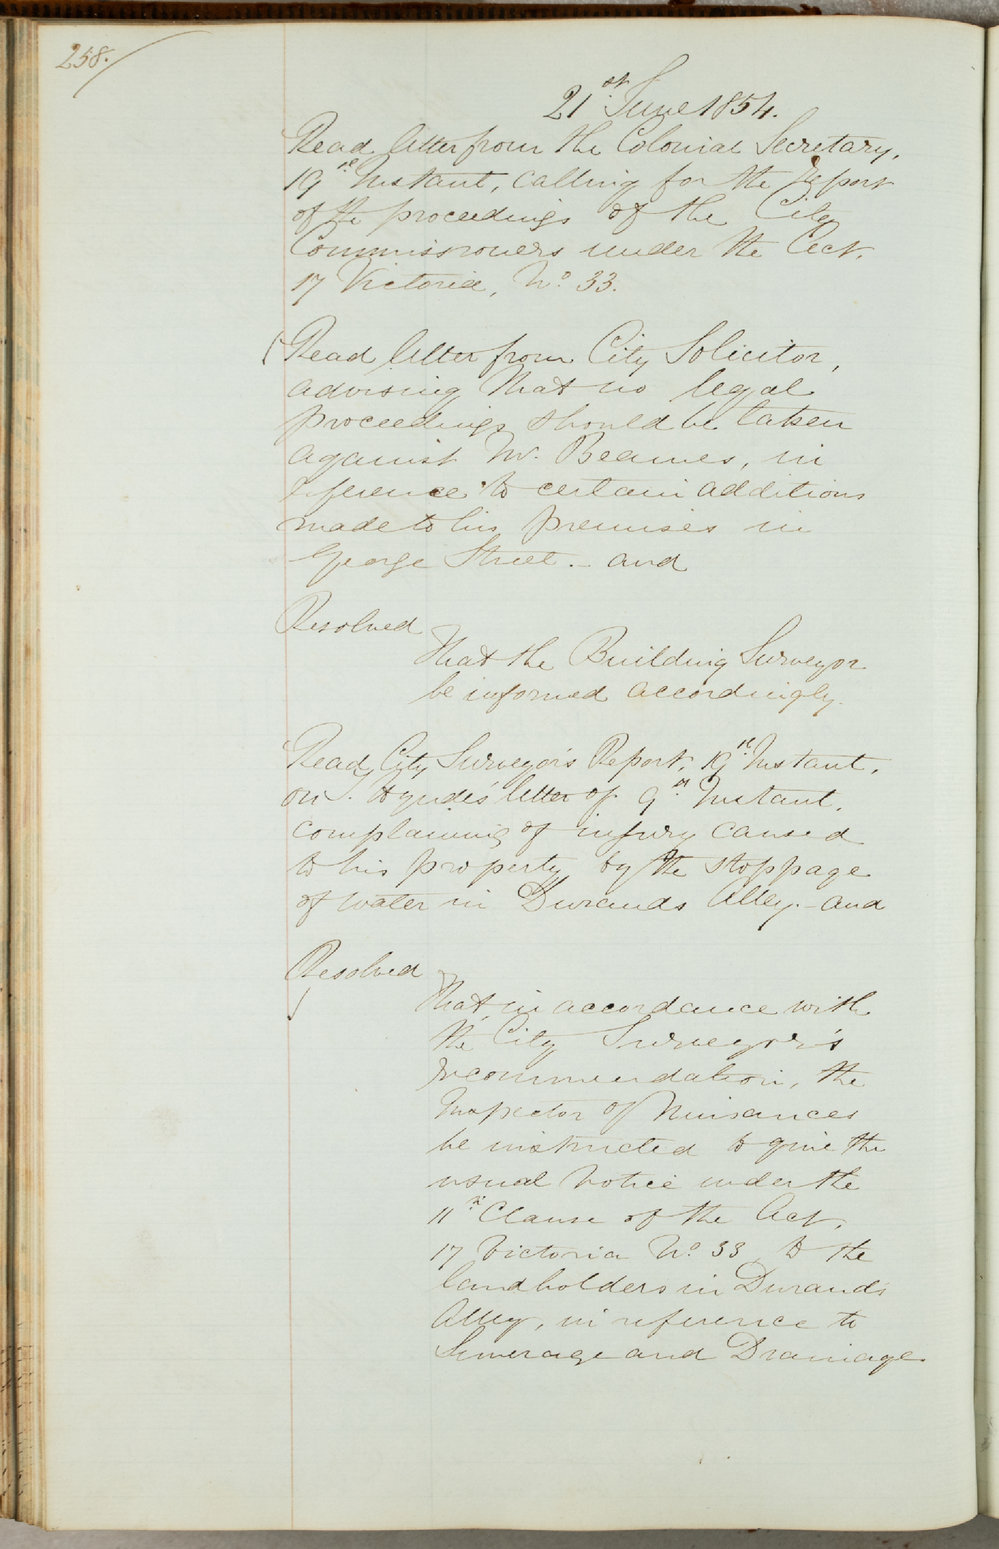 258.
21st June 1854.
Read letter from the Colonial Secretary,
19th Instant, calling for the Report
of the proceedings of the City
Commissioners under the Act,
17 Victoria, No. 33.
Read letter from City Solicitor,
advising that no legal
proceedings should be taken
against Mr. Beames, in
reference to certain additions
made to his premises in
George Street. - and
Resolved
That the Building Surveyor
be informed accordingly.
Read City Surveyor's Report, 19th Instant,
on letter of 9th Instant,
complaining of injury caused
to his property by the stoppage
of water in Durands Alley. - and
Resolved
That, in accordance with
the City Surveyor's
recommendation, the
Inspector of Nuisances
be instructed to give the
usual Notice under the
11th Clause of the Act,
17 Victoria No. 33 to the
landholders in Durands
Alley, in reference to
Sewerage and Drainage